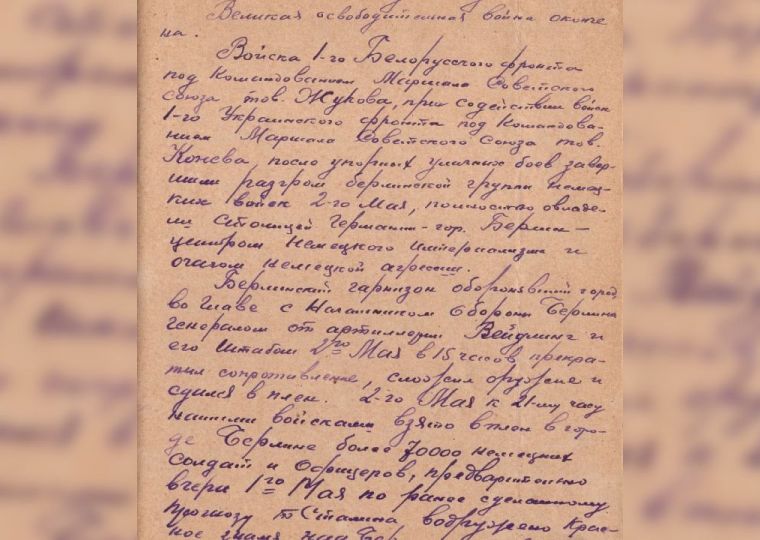 Великая освободительная война оконче
на.
Войска 1-го Белорусского фронта
под Командованием Маршала Советского
Союза тов. Жукова, при содействии войск
1-го Украинского фронта под Командова-
нием Маршала Советского Союза тов.
Конева, после упорных уличных боев завер-
шили разгром берлинской группы немец-
ких войск 2-го Мая, полностью овладе-
ли Столицей Германии - гор. Берлин -
центром Немецкого Империализма и
очагом немецкой агрессии.
Берлинский гарнизон оборонявший город
во главе с Начальником Обороны Берлина
Генералом от артиллерии Вейдлинг и
его Штабом 2го Мая в 15 часов прекра-
тил сопротивление, сложил оружие и
сдался в плен. 2-го Мая к 21-му часу
нашими войсками взято в плен в горо-
де Берлине более 70000 немецких
солдат и Офицеров, предварительно
вчера 1го Мая по ранее сделанному
прогнозу т. Сталина водружено Крас-
ное знамя над Бер